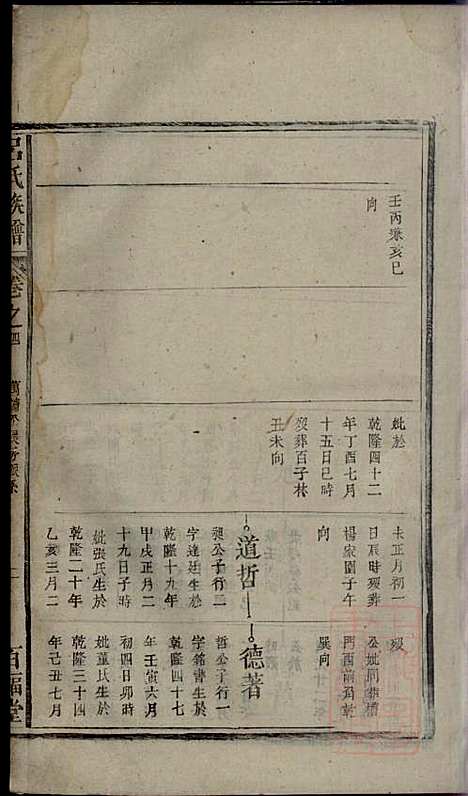 壬丙兼亥巳
向
妣於
乾隆四十二
年丁酉七月
十五日巳時
歿葬百子林
丑未向
未正月初一
日辰時歿葬
楊家園子午
向
道哲
昶公子行二
字達廷生於
乾隆十九年
甲戌正月二
十九日子時
妣張氏生於
乾隆二十年
乙亥三月二
歿
公妣同塋
門酉兩爲乾
巽向
德著
哲公子行一
字銘書生於
乾隆四十七
年壬寅六月
初四日卯時
妣董氏生於
乾隆三十四
年己丑七月
呂氏族譜
卷之四
百福堂